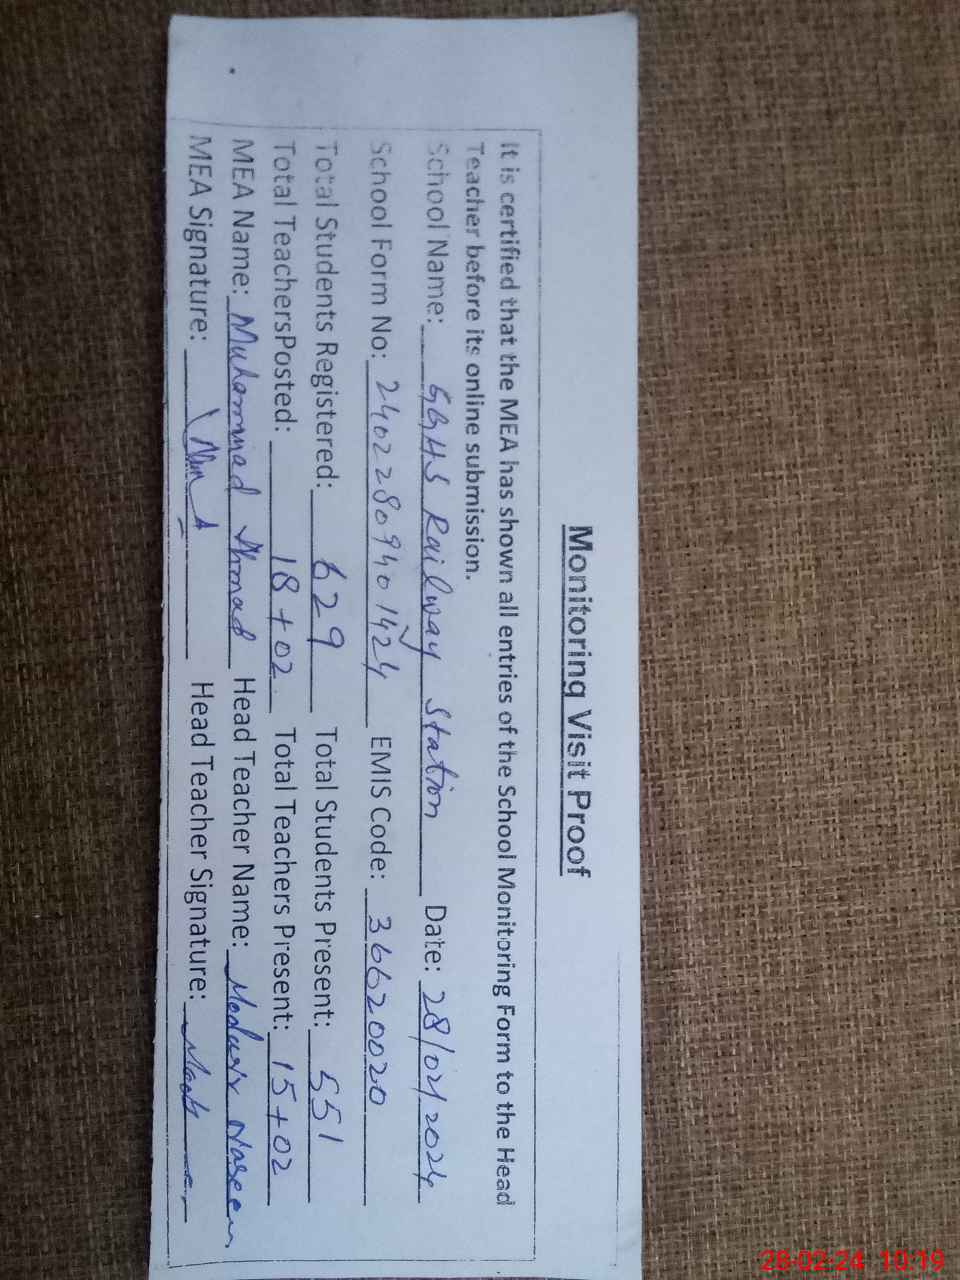 Monitoring Visit Proof
It is certified that the MEA has shown all entries of the School Monitoring Form to the Head
Teacher before its online submission.
School Name: GGHS Railway Station Date: 28/02/2024
School Form No: 2402280940 1424 EMIS Code: 36620020
Total Students Registered: 629 Total Students Present: 551
Total TeachersPosted: 18+02 Total Teachers Present: 15+02
MEA Name: Muhammad Ahmad Head Teacher Name: Naseem
MEA Signature: Head Teacher Signature:
28-02-24 10:19